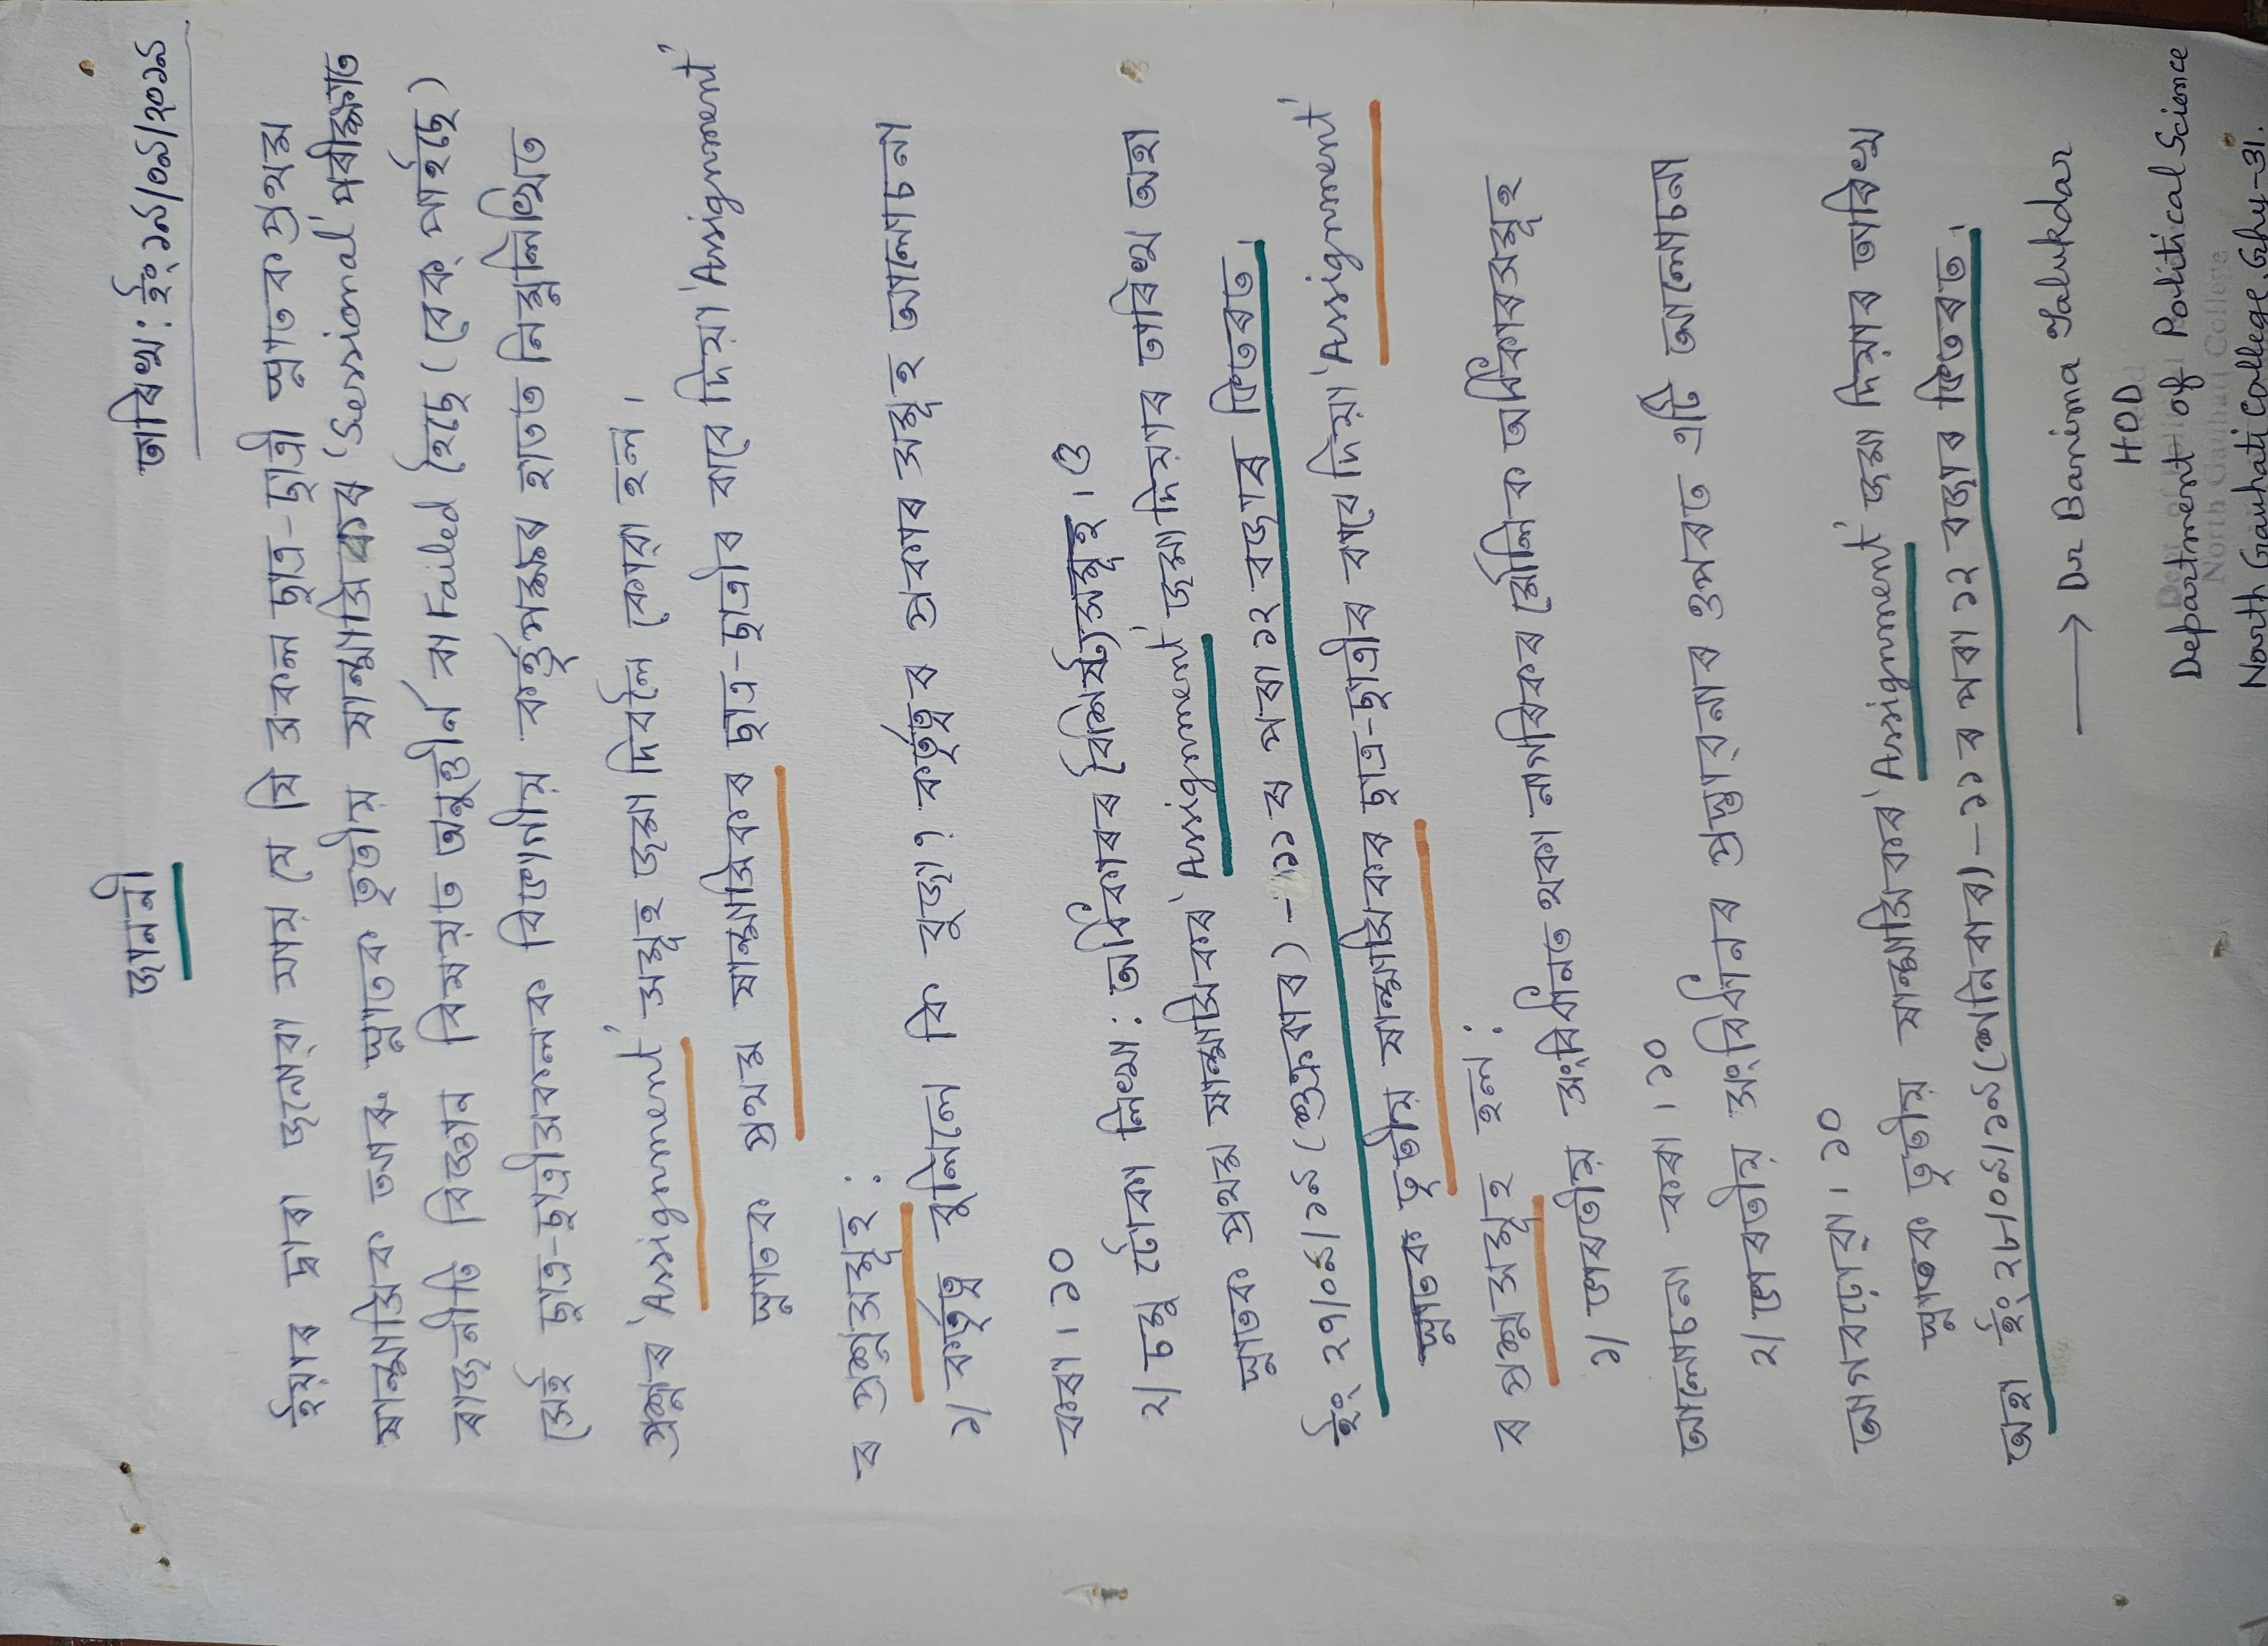 জাননী
তাৰিখ : ইং ১৯/০৯/২০১৯
ইয়াৰ দ্বাৰা জনোৱা যায় যে যি সকল ছাত্ৰ-ছাত্ৰী স্নাতক প্ৰথম
ষান্মাসিক আৰু স্নাতক তৃতীয় ষান্মাসিকৰ 'Sessional' পৰীক্ষাত
ৰাজনীতি বিজ্ঞান বিষয়ত অনুত্তীৰ্ন বা Failed হৈছে (বেক্ পাইছে)
সেই ছাত্ৰ-ছাত্ৰীসকলক বিভাগীয় কৰ্ত্তৃপক্ষৰ হাতত নিম্নলিখিত
প্ৰশ্নৰ 'Assignment' সমূহ জমা দিবলৈ কোৱা হল।
স্নাতক প্ৰথম ষান্মাসিকৰ ছাত্ৰ-ছাত্ৰীৰ বাবে দিয়া 'Assignment'
ৰ প্ৰশ্নসমূহ :
১/ কৰ্তৃত্ব বুলিলে কি বুজা? কৰ্তৃত্বৰ প্ৰকাৰ সমূহ আলোচনা
কৰা। ১০
২/ চমু টোকা লিখা : অধিকাৰৰ বৈশিষ্ট্যসমূহ। ৫
স্নাতক প্ৰথম ষান্মাসিকৰ 'Assignment' জমা দিয়াৰ তাৰিখ অহা
ইং ২৭/০৯/১৯ (শুক্ৰবাৰ) - ১১ ৰ পৰা ১২ বজাৰ ভিতৰত।
স্নাতক তৃতীয় ষান্মাসিকৰ ছাত্ৰ-ছাত্ৰীৰ বাবে দিয়া 'Assignment'
ৰ প্ৰশ্নসমূহ হল :
১/ ভাৰতীয় সংবিধানত থকা নাগৰিকৰ মৌলিক অধিকাৰসমূহ
আলোচনা কৰা। ১০
২/ ভাৰতীয় সংবিধানৰ প্ৰস্তাৱনাৰ ওপৰত এটি আলোচনা
আগবঢ়োৱা। ১০
স্নাতক তৃতীয় ষান্মাসিকৰ 'Assignment' জমা দিয়াৰ তাৰিখ
অহা ইং ২৮/০৯/১৯ (শনিবাৰ) - ১১ ৰ পৰা ১২ বজাৰ ভিতৰত।
→ Dr Banima Talukdar
HOD
Department of Political Science
North Gauhati College, Ghy-31.